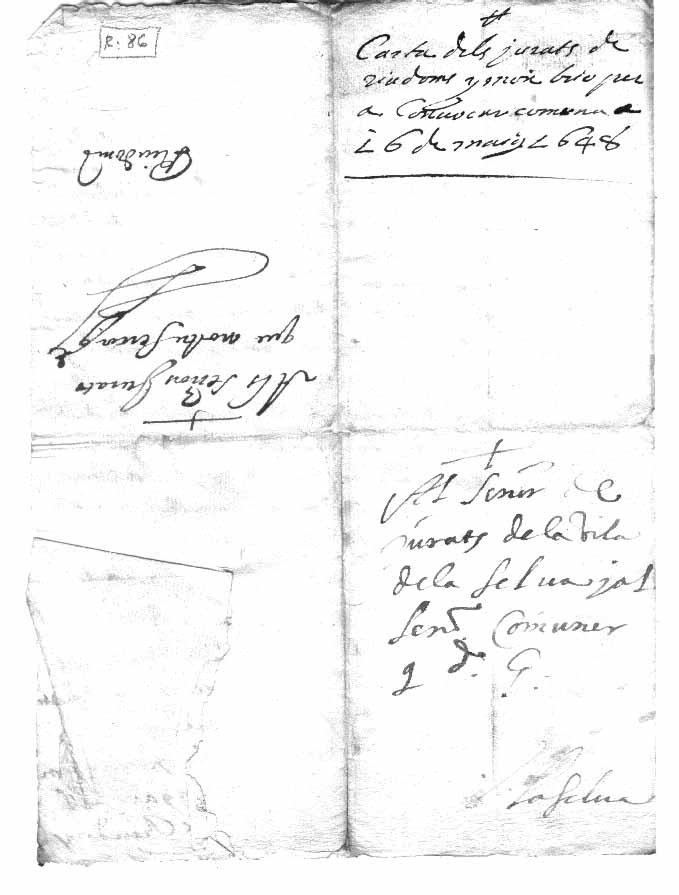 R. 86
Carta dels jurats de
riudoms y mon brio per
a Convocar comuna a
16 de maig 1648
Riudoms
Als Señors Jurats
que nostre Senor g
Al Senor de
jurats de la vila
de la Selva y al
Senr. Comuner
q dr. G.
la Selva